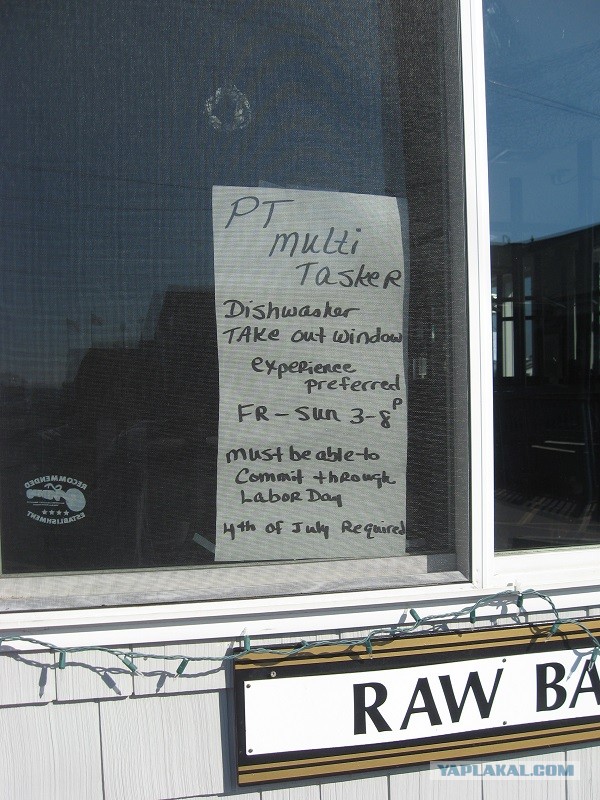 PT
multi
Tasker
Dishwasher
TAke out window
experience
preferred
FR - Sun 3-8P
must be able to
Commit through
Labor Day
4th of July Required
RECOMMENDED
ESTABLISHMENT
RAW BA
YAPLAKAL.COM